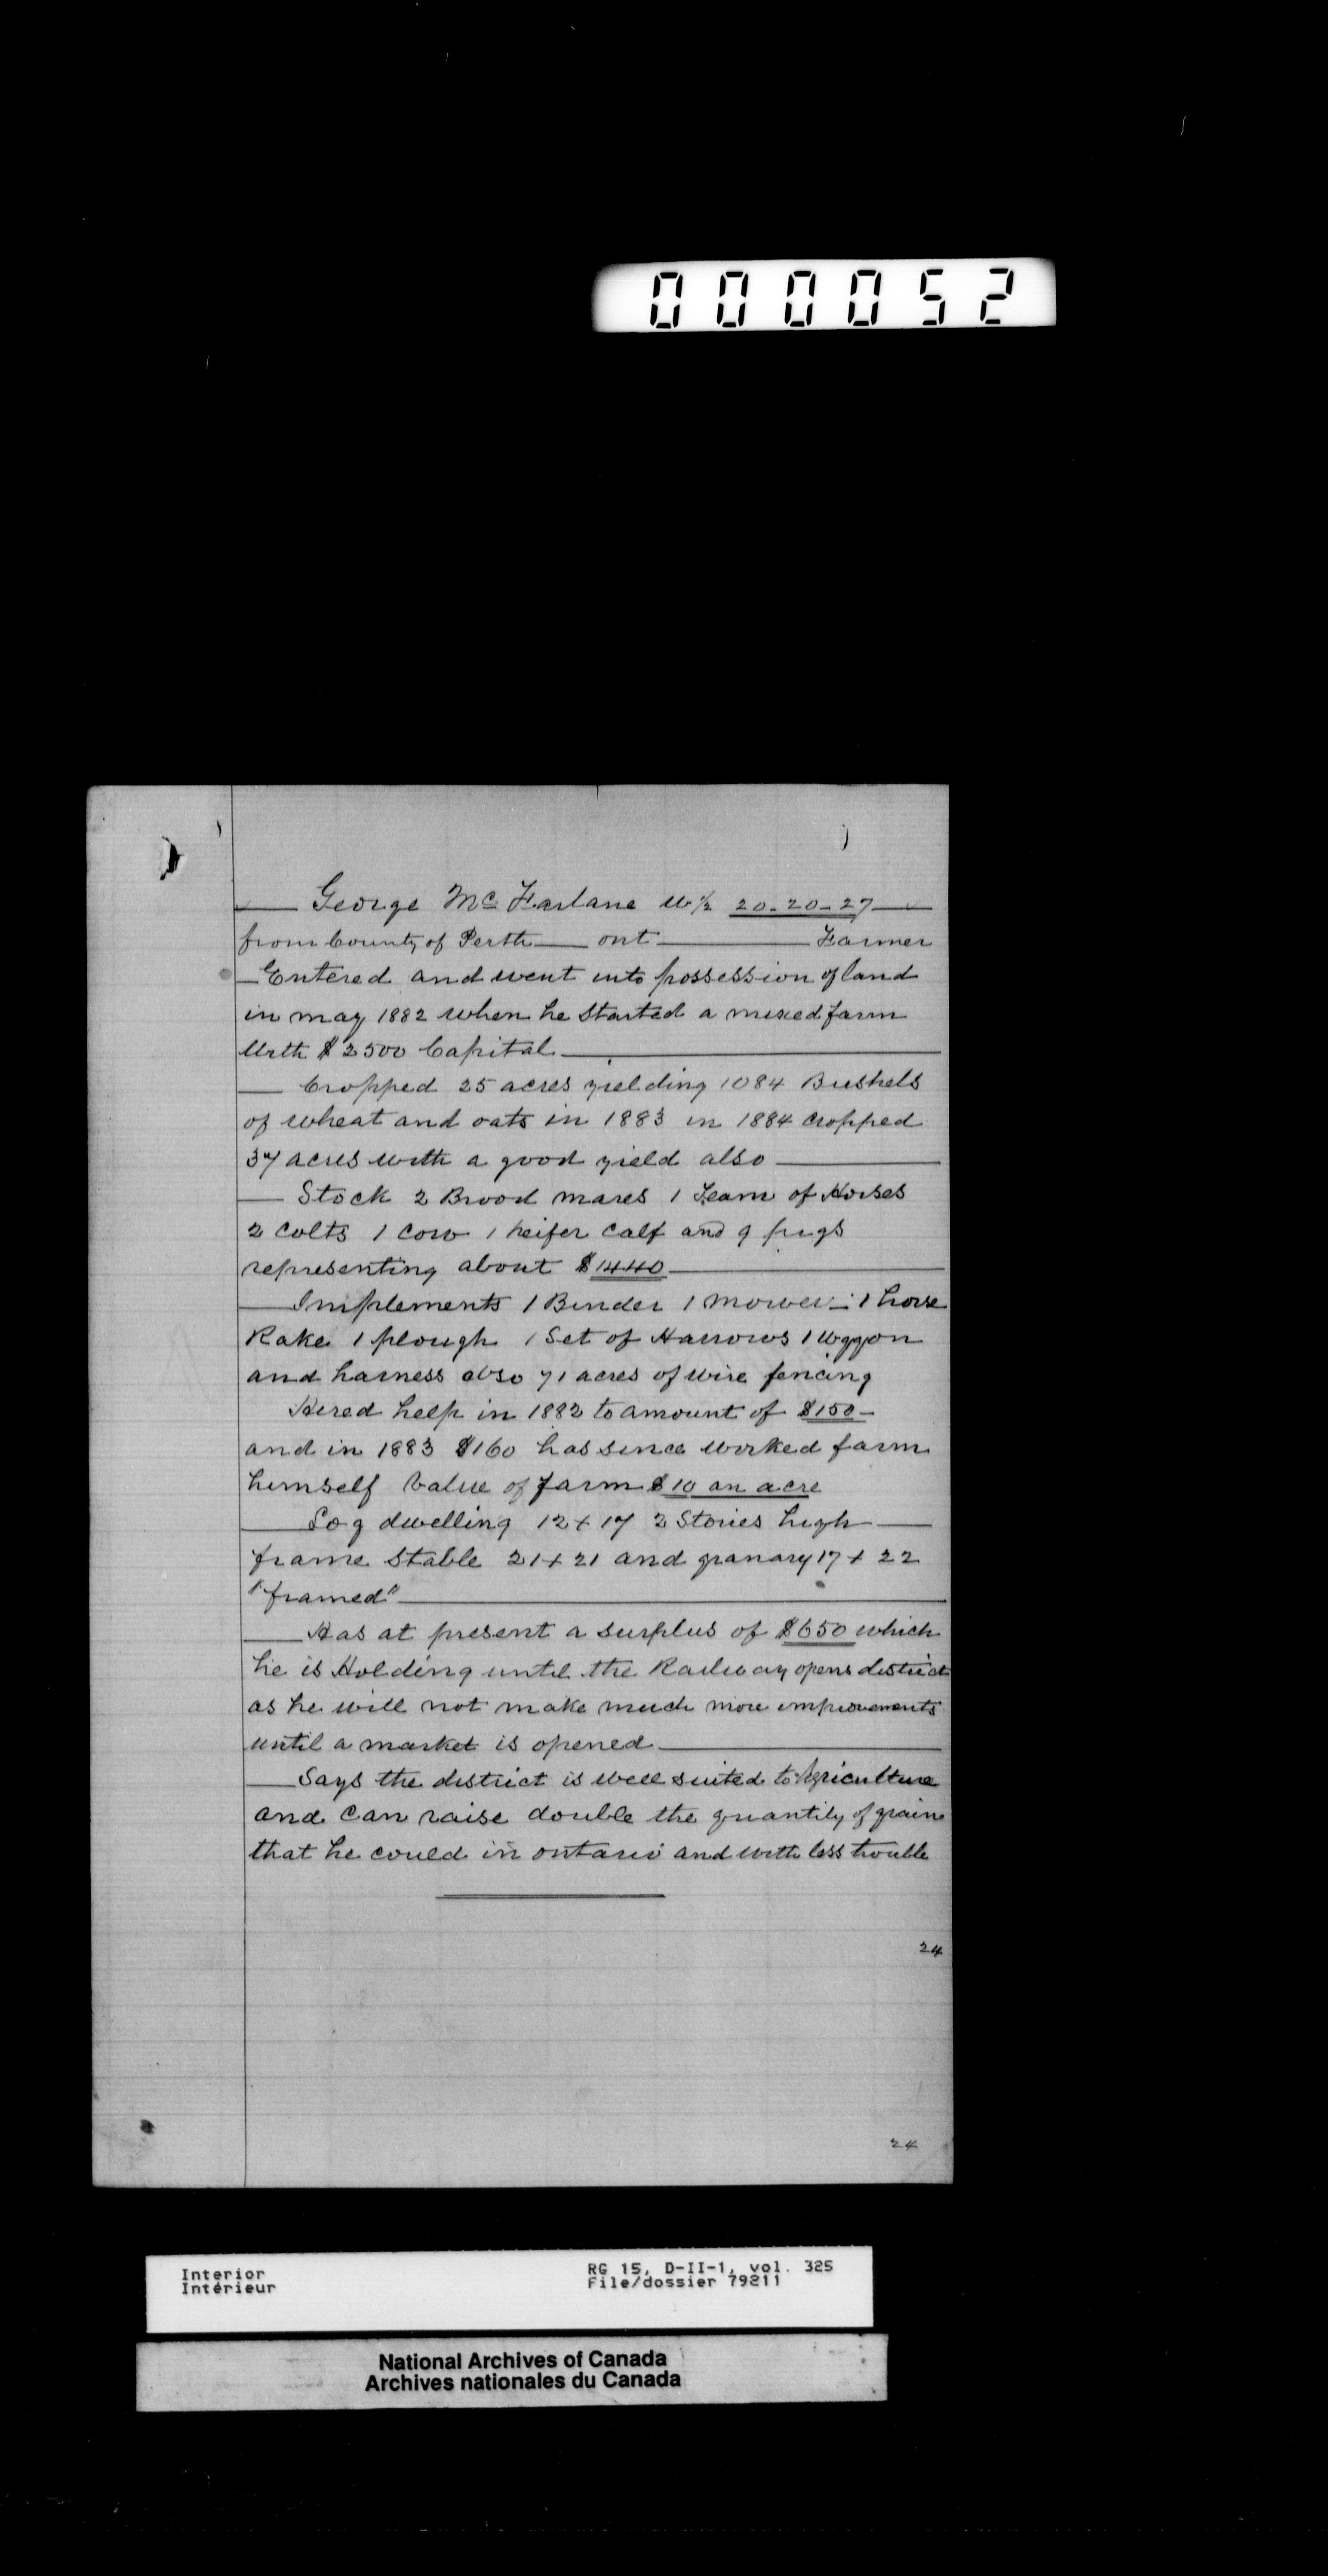 000052
George Mc Farlane W½ 20-20-27
from County of Perth ont Farmer
Entered and went into possession of land
in may 1882 when he started a mixed farm
With $2500 Capital
Cropped 25 acres yielding 1084 Bushels
of wheat and oats in 1883 in 1884 cropped
37 acres with a good yield also
Stock 2 Brood mares 1 Team of Horses
2 colts 1 cow 1 heifer calf and 9 pigs
representing about $1440
Implements 1 Binder 1 mower 1 horse
Rake 1 plough 1 Set of Harrows 1 wggon
and harness also 71 acres of wire fencing
Hired help in 1882 to amount of $150
and in 1883 $160 has since worked farm
himself Value of farm $10 an acre
Log dwelling 12 x 17 2 Stories high
frame Stable 21 x 21 and granary 17 x 22
"framed"
Has at present a surplus of $650 which
he is Holding until the Railway opens district
as he will not make much more improvements
until a market is opened
Says the district is well suited to Agriculture
and can raise double the quantity of grain
that he could in ontario and with less trouble
24
24
Interior RG 15, D-II-1, vol. 325
Intérieur File/dossier 79211
National Archives of Canada
Archives nationales du Canada